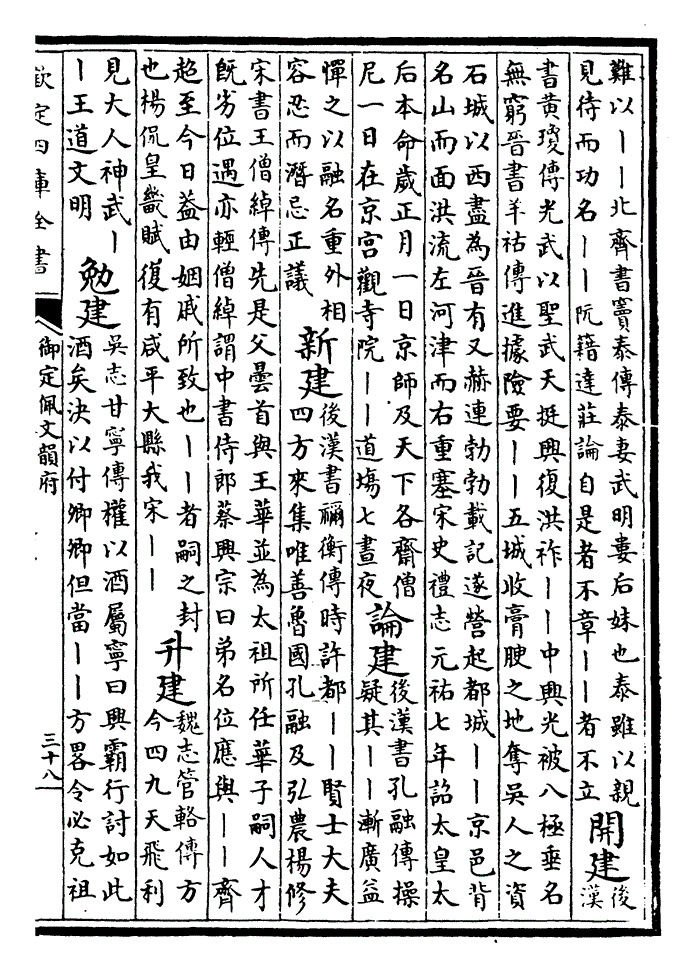 難以丨丨北齊書竇泰傳泰妻武明婁后妹也泰雖以親
見待而功名丨丨阮籍達莊論自是者不章丨丨者不立
開建
後
漢
書黄瓊傳光武以聖武天挺興復洪祚丨丨中興光被八極垂名
無窮晉書羊祜傳進據險要丨丨五城收膏腴之地奪吳人之資
石城以西盡為晉有又赫連勃勃載記遂營起都城丨丨京邑背
名山而面洪流左河津而右重塞宋史禮志元祐七年詔太皇太
后本命歲正月一日京師及天下各齋僧
尼一日在京宮觀寺院丨丨道場七晝夜
論建
後漢書孔融傳操
疑其丨丨漸廣益
憚之以融名重外相
容忍而潛忌正議
新建
後漢書禰衡傳時許都丨丨賢士大夫
四方來集唯善魯國孔融及弘農楊修
宋書王僧綽傳先是父曇首與王華並為太祖所任華子嗣人才
既劣位遇亦輕僧綽謂中書侍郎蔡興宗曰弟名位應與丨丨齊
超至今日葢由姻戚所致也丨丨者嗣之封
也楊侃皇畿賦復有咸平大縣我宋丨丨
升建
魏志管輅傳方
今四九天飛利
見大人神武丨
丨王道文明
勉建
吳志甘寧傳權以酒屬寧曰興霸行討如此
酒矣決以付卿卿但當丨丨方畧令必克祖
欽定四庫全書
御定佩文韻府
三十八